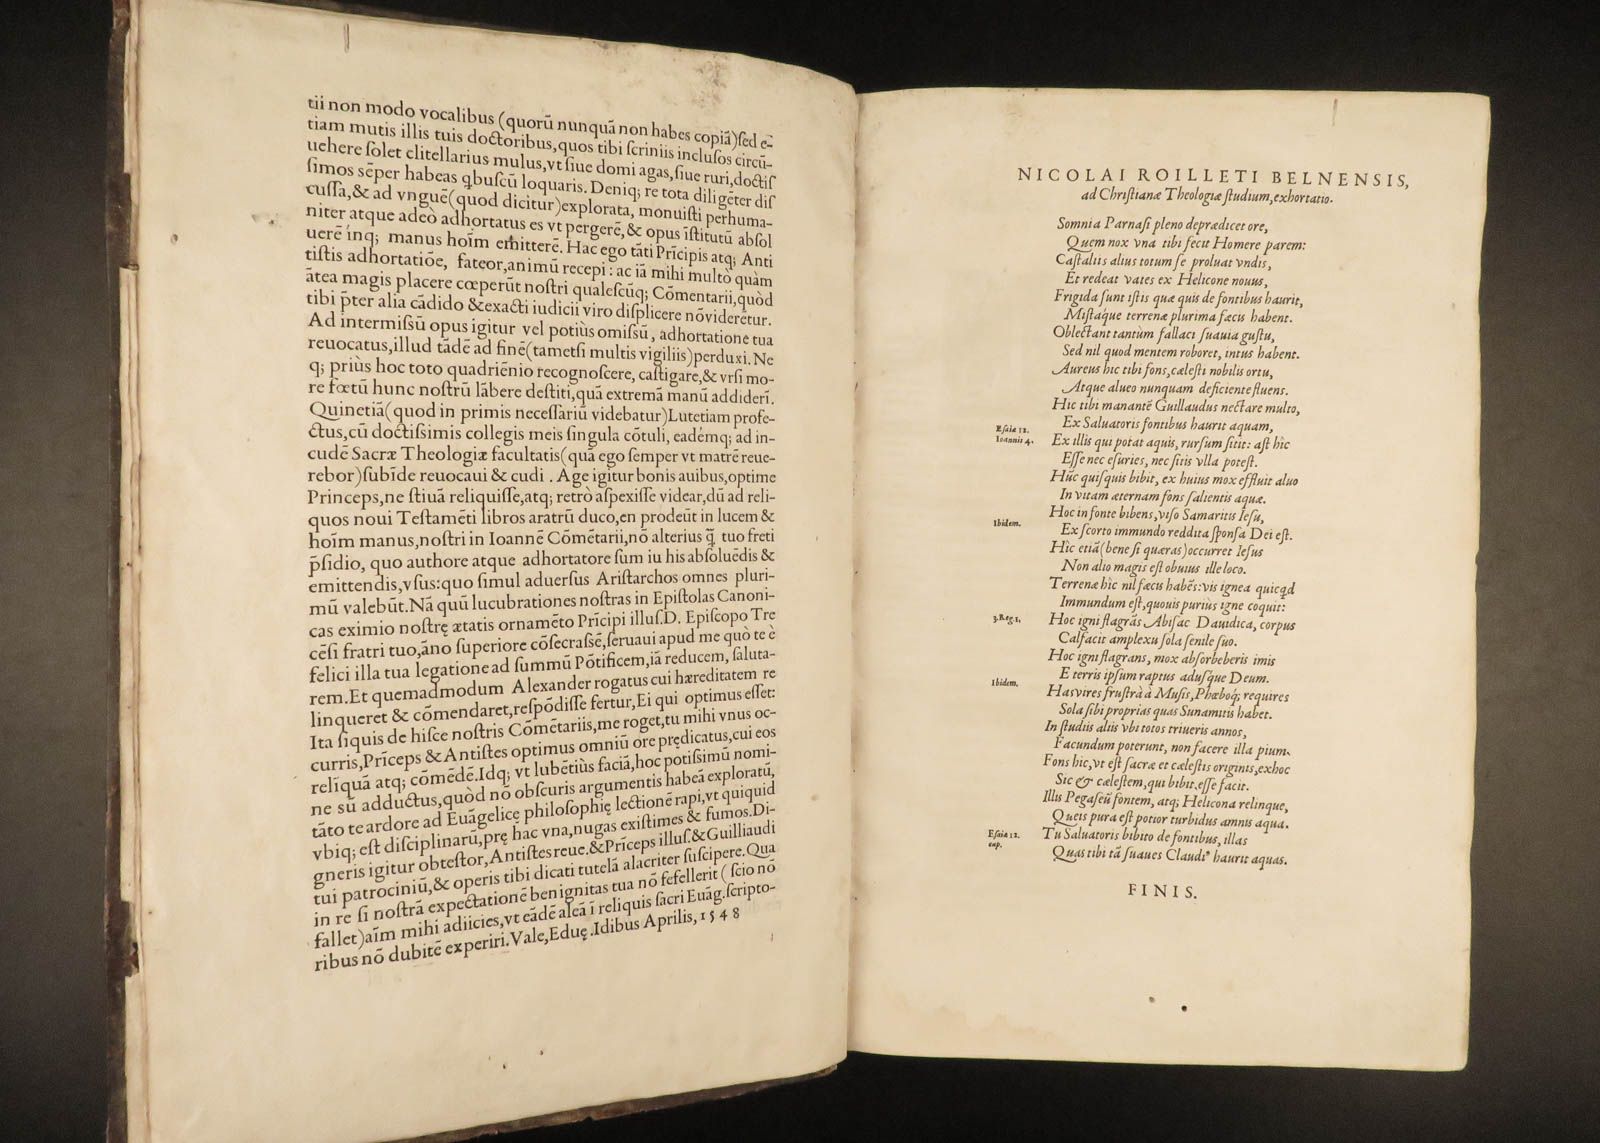 tii non modo vocalibus (quorũ nunquã non habes copiã)ſed e-
tiam mutis illis tuis doctoribus,quos tibi ſcriniis incluſos circũ-
uehere ſolet clitellarius mulus,vt ſiue domi agas,ſiue ruri,doctiſ
ſimos sẽper habeas qbuſcũ loquaris. Deniq; re tota diligẽter diſ
cuſſa,& ad vnguẽ(quod dicitur)explorata, monuiſti perhuma-
niter atque adeò adhortatus es vt pergerẽ,& opus ĩſtitutũ abſol
uerẽ inq; manus hoĩm emitterẽ. Hac ego tãti Prĩcipis atq; Anti
tiſtis adhortatiõe, fateor,animũ recepi: ac iã mihi multò quàm
ãtea magis placere cœperũt noſtri qualeſcũq; Cõmentarii,quòd
tibi p̃ter alia cãdido &exacti iudicii viro diſplicere nõviderẽtur.
Ad intermiſsũ opus igitur vel potiùs omiſsũ, adhortatione tua
reuocatus,illud tãdẽ ad finẽ(tametſi multis vigiliis)perduxi. Ne
q; priùs hoc toto quadriẽnio recognoſcere, caſtigare,& vrſi mo-
re fœtũ hunc noſtrũ lãbere deſtiti,quã extremã manũ addiderĩ.
Quinetiã(quod in primis neceſſariũ videbatur)Lutetiam profe-
ctus,cũ doctiſsimis collegis meis ſingula cõtuli, eadẽmq; ad in-
cudẽ Sacræ Theologiæ facultatis(quã ego ſemper vt matrẽ reue-
rebor)ſubĩde reuocaui & cudi . Age igitur bonis auibus,optime
Princeps,ne ſtiuã reliquiſſe,atq; retrò aſpexiſſe videar,dũ ad reli-
quos noui Teſtamẽti libros aratrũ duco,en prodeũt in lucem &
hoĩm manus,noſtri in Ioannẽ Cõmẽtarii,nõ alterius q̃ tuo freti
p̃ſidio, quo authore atque adhortatore ſum iu his abſoluẽdis &
emittendis,vſus:quo ſimul aduerſus Ariſtarchos omnes pluri-
mũ valebũt.Nã quũ lucubrationes noſtras in Epiſtolas Canoni-
cas eximio noſtrę ætatis ornamẽto Prĩcipi illuſ.D. Epiſcopo Tre
cẽſi fratri tuo,ãno ſuperiore cõſecraſſẽ,ſeruaui apud me quò te è
felici illa tua legatione ad ſummũ Põtificem,iã reducem, ſaluta-
rem.Et quemadmodum Alexander rogatus cui hæreditatem re
linqueret & cõmendaret,reſpõdiſſe fertur,Ei qui optimus eſſet:
Ita ſiquis de hiſce noſtris Cõmẽtariis,me roget,tu mihi vnus oc-
curris,Prĩceps & Antiſtes optimus omniũ ore prędicatus,cui eos
relĩquã atq; cõmẽdẽ.Idq; vt lubẽtiùs faciã,hoc potiſsimũ nomi-
ne sũ adductus,quòd nõ obſcuris argumentis habeã exploratũ,
tãto te ardore ad Euãgelicę philoſophię lectionẽ rapi,vt quiquid
vbiq; eſt diſciplinarũ,prę hac vna,nugas exiſtimes & fumos.Di-
gneris igitur obteſtor,Antiſtes reue.& Prĩceps illuſ.& Guilliaudi
tui patrociniũ,& operis tibi dicati tutelã alacriter ſuſcipere.Qua
in re ſi noſtrã expectationẽ benignitas tua nõ fefellerit ( ſcio nõ
fallet)aĩm mihi adiicies,vt eãdẽ aleã ĩ reliquis ſacri Euãg.ſcripto-
ribus nõ dubitẽ experiri.Vale,Eduę .Idibus Aprilis, 1548
NICOLAI ROILLETI BELNENSIS,
ad Chriſtianæ Theologiæ ſtudium,exhortatio.
Somnia Parnaſi pleno deprædicet ore,
Quem nox vna tibi fecit Homere parem:
Caſtaliis alius totum ſe proluat vndis,
Et redeat vates ex Helicone nouus,
Frigida ſunt iſtis quæ quis de fontibus haurit,
Miſtaque terrenæ plurima fæcis habent.
Oblectant tantùm fallaci ſuauia guſtu,
Sed nil quod mentem roboret, intus habent.
Aureus hic tibi fons,cæleſti nobilis ortu,
Atque alueo nunquam deficiente fluens.
Hic tibi manantẽ Guillaudus nectare multo,
Ex Saluatoris fontibus haurit aquam,
Eſaiæ 12.
Ioannis 4.
Ex illis qui potat aquis, rurſum ſitit: aſt hîc
Eſſe nec eſuries, nec ſitis vlla poteſt.
Hũc quiſquis bibit, ex huius mox effluit aluo
In vitam æternam fons ſalientis aquæ.
Hoc in fonte bibens,viſo Samaritis Ieſu,
Ibidem.
Ex ſcorto immundo reddita ſponſa Dei eſt.
Hîc etiã(bene ſi quæras)occurret Ieſus
Non alio magis eſt obuius ille loco.
Terrenæ hîc nil fæcis habẽs:vis ignea quicqd
Immundum eſt,quouis puriùs igne coquit:
3.Reg.1.
Hoc igni flagrãs Abiſac Dauidica, corpus
Calfacit amplexu ſola ſenile ſuo.
Hoc igni flagrans, mox abſorbeberis imis
E terris ipſum raptus aduſque Deum.
Ibidem.
Has vires fruſtrà à Muſis,Phœboq; requires
Sola ſibi proprias quas Sunamitis habet.
In ſtudiis aliis vbi totos triueris annos,
Facundum poterunt, non facere illa pium.
Fons hic,vt eſt ſacræ et cæleſtis originis,exhoc
Sic & cæleſtem,qui bibit,eſſe facit.
Illis Pegaſeũ fontem, atq; Helicona relinque,
Queis pura eſt potior turbidus amnis aqua.
Eſaiæ 12.
cap.
Tu Saluatoris bibito de fontibus, illas
Quas tibi tã ſuaues Claudiꝰ haurit aquas.
FINIS.